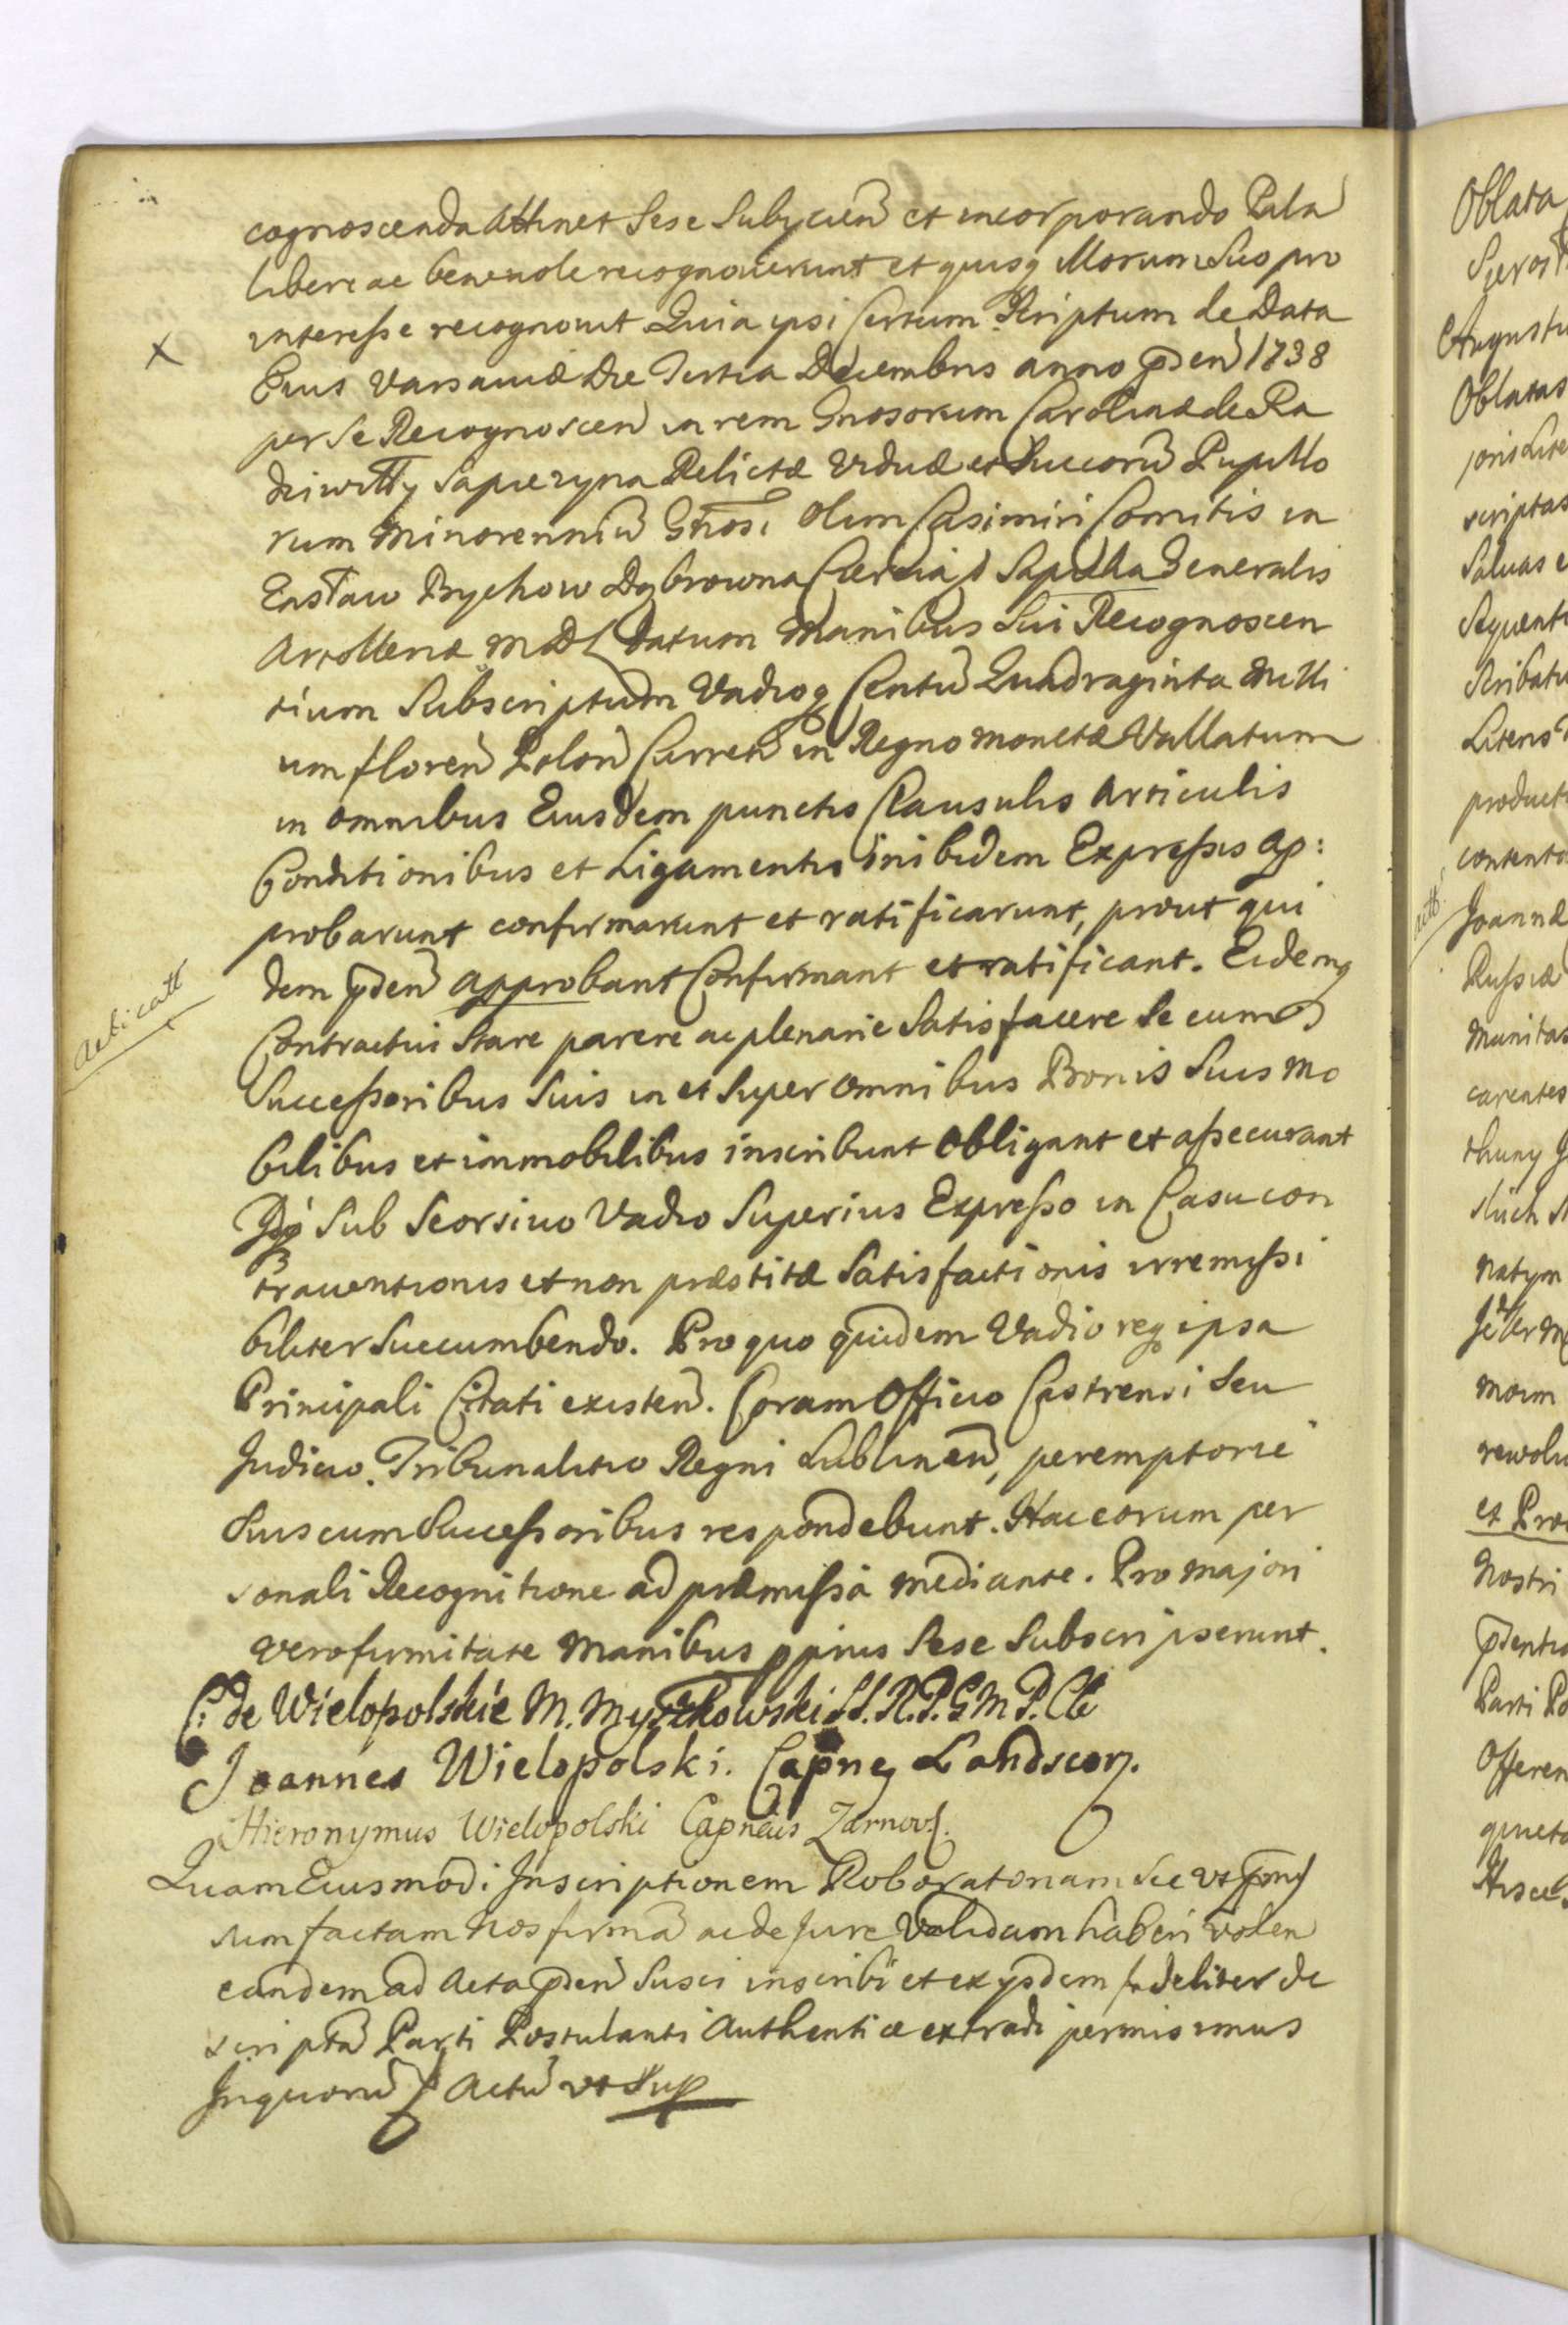 cognoscenda attinet Sese Subijcien et incorporando Pala
libere ac benevole recognoverunt et quisq Morum Suo pro
interesse recognovit Quia ipsi Certum Scriptum de Data
Eius Varsaviæ Die Tertia Decembris anno pden 1738
per Se Recognoscen in rem Gnosorum Carolinæ de Ra
dziwiłły Sapiezyna Relictæ Viduæ et Succorũ Pupillo
rum Minorenniũ Gnosi olim Casimiri Comitis in
Zasław Bychow Dąbrowna Sapieha Generalis
Artolleriæ MDL Datum Manibus Sui Recognoscen
tium Subscriptum Vadioq Centũ Quadraginta Milli
um floren Polon Curren in Regno monetæ Vallatum
in omnibus Eiusdem punctis Clausulis Articulis
Conditionibus et Ligamentis inibidem Expressis ap:
probarunt confirmarunt et ratificarunt, prout qui
dem pden approbant Confirmant et ratificant. Eidemq
Contractui Stare parere ac plenarie Satisfacere Se cum
Successoribus Suis in et Super omnibus Bonis Suis mo
bilibus et immobilibus inscribunt Obligant et assecurant
Sub Seorsivo Vadio Superius Expresso in Casu con
traventionis et non præstitæ Satisfactionis irremissi
biliter Succumbendo. Pro quo quidem Vadio req ipsa
Principali Citati existen. Coram Officio Castrensi Seu
Judicio Tribunalitio Regni Lublinen, peremptorie
Suis cum Successoribus respondebunt. Hac eorum per
sonali Recognitione ad præmissa mediante. Pro majori
vero firmitate Manibus ppriis Sese Subscripserunt.
C: de Wielopolskie M. Myszkowski
Joannes Wielopolski. Capneq Landscor.
Hieronymus Wielopolski Capneus Zarnov.
Quam Eiusmodi Inscriptionem Roboratoriam Sic vt
sum factam Nos firmã ac de Jure Validam haberi volen
eandem ad Acta pden Susci inscribi et ex ijsdem fideliter de
scriptã Parti Postulanti Authentice extradi permisimus
Inquorũ f Actũ vt Sup
X
Oblata
Augustu
Oblatas
scriptas
Saluas e
Sequenti
Scribatu
Literis
product
contenta
Joannæ
Russiæ
Munitas
carentes
natym
moim
et Pro
Nostri
Parti Po
Offeren